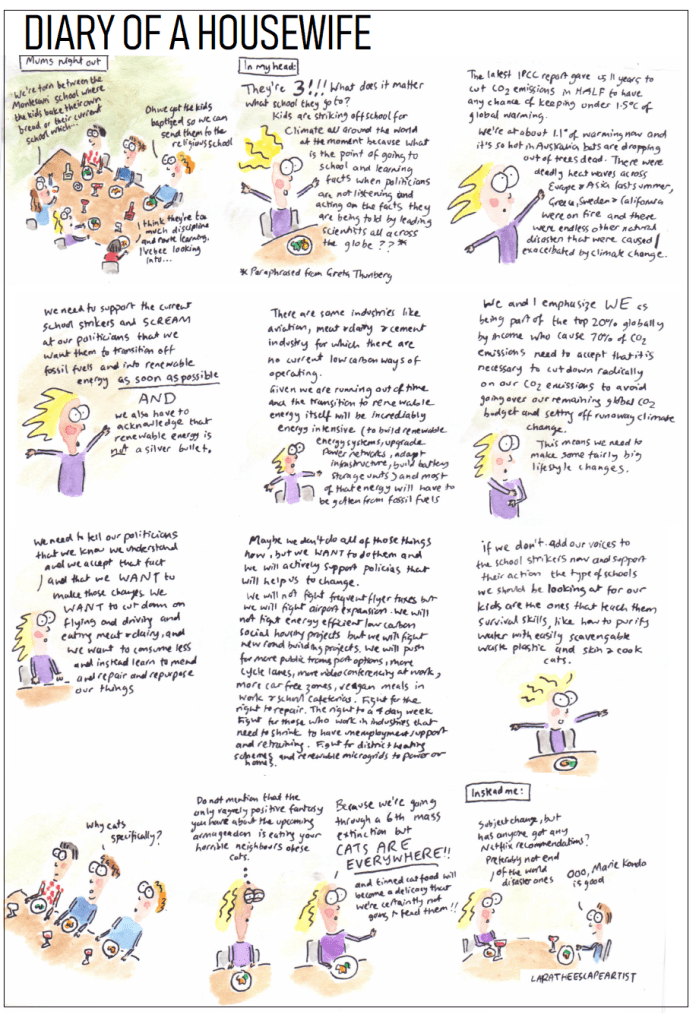 DIARY OF A HOUSEWIFE
Mums night out
We're torn between the
Montessori school where
the kids bake their own
bread or their current
school which...
Oh we got the kids
baptized so we can
send them to the
religious school
I think they're too
much discipline
and route learning,
I've bee looking
into...
In my head:
They're 3!!! What does it matter
what school they go to?
Kids are striking off school for
Climate all around the world
at the moment because what
is the point of going to
school and learning
facts when politicians
are not listening and
acting on the facts they
are being told by leading
scientists all across
the globe ??*
* Paraphrased from Greta Thunberg
The latest IPCC report gave us 11 years to
cut CO2 emissions in HALF to have
any chance of keeping under 1.5°C of
global warming.
We're at about 1.1° of warming now and
it's so hot in Australia bats are dropping
out of trees dead. There were
deadly heat waves across
Europe & Asia last summer,
Greece, Sweden & California
were on fire and there
were endless other natural
disasters that were caused /
exacerbated by climate change.
We need to support the current
school strikers and SCREAM
at our politicians that we
want them to transition off
fossil fuels and into renewable
energy as soon as possible
AND
we also have to
acknowledge that
renewable energy is
not a silver bullet.
There are some industries like
aviation, meat & dairy & cement
industry for which there are
no current low carbon ways of
operating.
Given we are running out of time
and the transition to renewable
energy itself will be incrediably
energy intensive (to build renewable
energy systems, upgrade
power networks, adapt
infrastructure, build battery
storage units) and most
of that energy will have to
be gotten from fossil fuels
We and I emphasize WE as
being part of the top 20% globally
by income who cause 70% of CO2
emissions need to accept that it is
necessary to cut down radically
on our CO2 emissions to avoid
going over our remaining global CO2
budget and setting off runaway climate
change.
This means we need to
make some fairly big
lifestyle changes.
We need to tell our politicians
that we know we understand
and we accept that fact
and that we WANT to
make those changes. We
WANT to cut down on
flying and driving and
eating meat & dairy, and
we want to consume less
and instead learn to mend
and repair and repurpose
our things
Maybe we don't do all of those things
now, but we WANT to do them and
we will actively support policies that
will help us to change.
We will not fight frequent flyer taxes but
we will fight airport expansion. We will
not fight energy efficient low carbon
social housing projects but we will fight
new road building projects. We will push
for more public transport options, more
cycle lanes, more video conferencing at work,
more car free zones, vegan meals in
work & school cafeterias. Fight for the
right to repair. The right to a 4 day week
Fight for those who work in industries that
need to shrink to have unemployment support
and retraining. Fight for district heating
schemes and renewable microgrids to power our
homes.
if we don't add our voices to
the school strikers now and support
their action the type of schools
we should be looking at for our
kids are the ones that teach them
survival skills, like how to purify
water with easily scavengable
waste plastic and skin & cook
cats.
Why cats
specifically?
Do not mention that the
only vaguely positive fantasy
you have about the upcoming
armageddon is eating your
horrible neighbours obese
cats.
Because we're going
through a 6th mass
extinction but
CATS ARE
EVERYWHERE!!
and tinned cat food will
become a delicacy that
we're certainly not
going to feed them!!
Instead me:
Subject change, but
has anyone got any
Netflix recommendations?
Preferably not end
of the world
disaster ones
Ooo, Marie Kondo
is good
LARATHEESCAPEARTIST